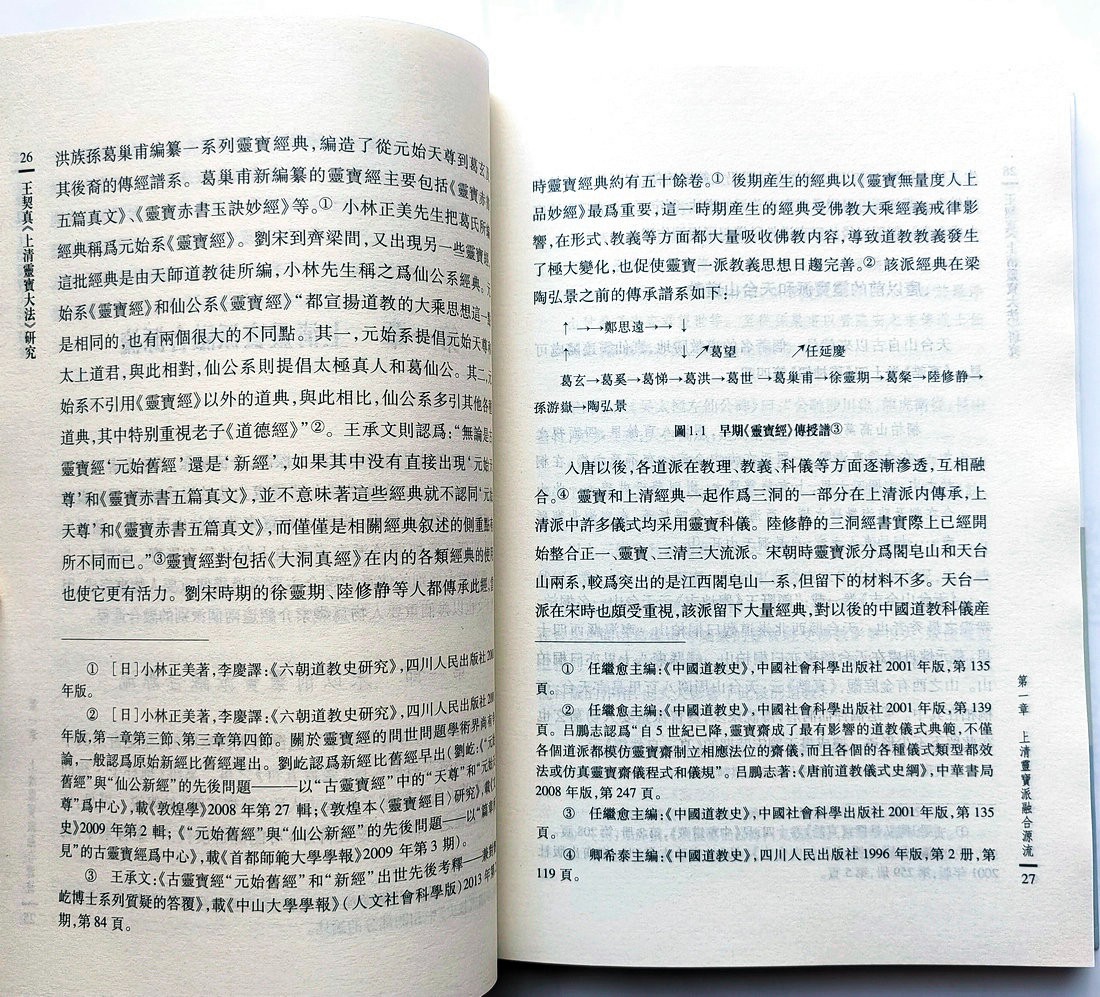 26
王契真《上清靈寶大法》研究
洪族孫葛巢甫編纂一系列靈寶經典，編造了從元始天尊到葛玄及
其後裔的傳經譜系。葛巢甫新編纂的靈寶經主要包括《靈寶赤書
五篇真文》、《靈寶赤書玉訣妙經》等。① 小林正美先生把葛氏所
經典稱爲元始系《靈寶經》。劉宋到齊梁間，又出現另一些靈寶經
這批經典是由天師道教徒所編，小林先生稱之爲仙公系經典。
始系《靈寶經》和仙公系《靈寶經》“都宣揚道教的大乘思想這一
是相同的，也有兩個很大的不同點。其一，元始系提倡元始天尊和
太上道君，與此相對，仙公系則提倡太極真人和葛仙公。其二，元
始系不引用《靈寶經》以外的道典，與此相比，仙公系多引其他各種
道典，其中特别重視老子《道德經》”②。王承文則認爲：“無論是古
靈寶經‘元始舊經’還是‘新經’，如果其中没有直接出現‘元始
尊’和《靈寶赤書五篇真文》，並不意味著這些經典就不認同‘元始
天尊’和《靈寶赤書五篇真文》，而僅僅是相關經典叙述的側重點有
所不同而已。”③靈寶經對包括《大洞真經》在内的各類經典的使用
也使它更有活力。劉宋時期的徐靈期、陸修静等人都傳承此經，
① ［日］小林正美著，李慶譯：《六朝道教史研究》，四川人民出版社
年版。
② ［日］小林正美著，李慶譯：《六朝道教史研究》，四川人民出版社
年版，第一章第三節、第三章第四節。關於靈寶經的問世問題學術界尚有争
論，一般認爲原始新經比舊經遲出。劉屹認爲新經比舊經早出（劉屹：《“元始
舊經”與“仙公新經”的先後問題———以“古靈寶經”中的“天尊”和“元始天
尊”爲中心》，載《敦煌學》2008 年第 27 輯；《敦煌本〈靈寶經目〉研究》，載《文
史》2009 年第 2 輯；《“元始舊經”與“仙公新經”的先後問題——以“篇章所
見”的古靈寶經爲中心》，載《首都師範大學學報》2009 年第 3 期）。
③ 王承文：《古靈寶經“元始舊經”和“新經”出世先後考釋——兼對劉
屹博士系列質疑的答覆》，載《中山大學學報》（人文社會科學版）2013 年第
期，第 84 頁。
時靈寶經典約有五十餘卷。① 後期産生的經典以《靈寶無量度人上
品妙經》最爲重要，這一時期産生的經典受佛教大乘經義戒律影
響，在形式、教義等方面都大量吸收佛教内容，導致道教教義發生
了極大變化，也促使靈寶一派教義思想日趨完善。② 該派經典在梁
陶弘景之前的傳承譜系如下：
↑ →→鄭思遠→→ ↓
↑ ↓ ↗葛望 ↗任延慶
葛玄→葛奚→葛悌→葛洪→葛世→葛巢甫→徐靈期→葛粲→陸修静→
孫游嶽→陶弘景
圖1.1 早期《靈寶經》傳授譜③
入唐以後，各道派在教理、教義、科儀等方面逐漸滲透，互相融
合。④ 靈寶和上清經典一起作爲三洞的一部分在上清派内傳承，上
清派中許多儀式均采用靈寶科儀。陸修静的三洞經書實際上已經開
始整合正一、靈寶、三清三大流派。宋朝時靈寶派分爲閣皂山和天台
山兩系，較爲突出的是江西閣皂山一系，但留下的材料不多。天台一
派在宋時也頗受重視，該派留下大量經典，對以後的中國道教科儀産
① 任繼愈主編：《中國道教史》，中國社會科學出版社 2001 年版，第 135
頁。
② 任繼愈主編：《中國道教史》，中國社會科學出版社 2001 年版，第 139
頁。吕鵬志認爲“自 5 世紀已降，靈寶齋成了最有影響的道教儀式典範，不僅
各個道派都模仿靈寶齋制立相應法位的齋儀，而且各個的各種儀式類型都效
法或仿真靈寶齋儀程式和儀規”。吕鵬志著：《唐前道教儀式史綱》，中華書局
2008 年版，第 247 頁。
③ 任繼愈主編：《中國道教史》，中國社會科學出版社 2001 年版，第 135
頁。
④ 卿希泰主編：《中國道教史》，四川人民出版社 1996 年版，第 2 册，第
119 頁。
第一章 上清靈寶派融合源流
27